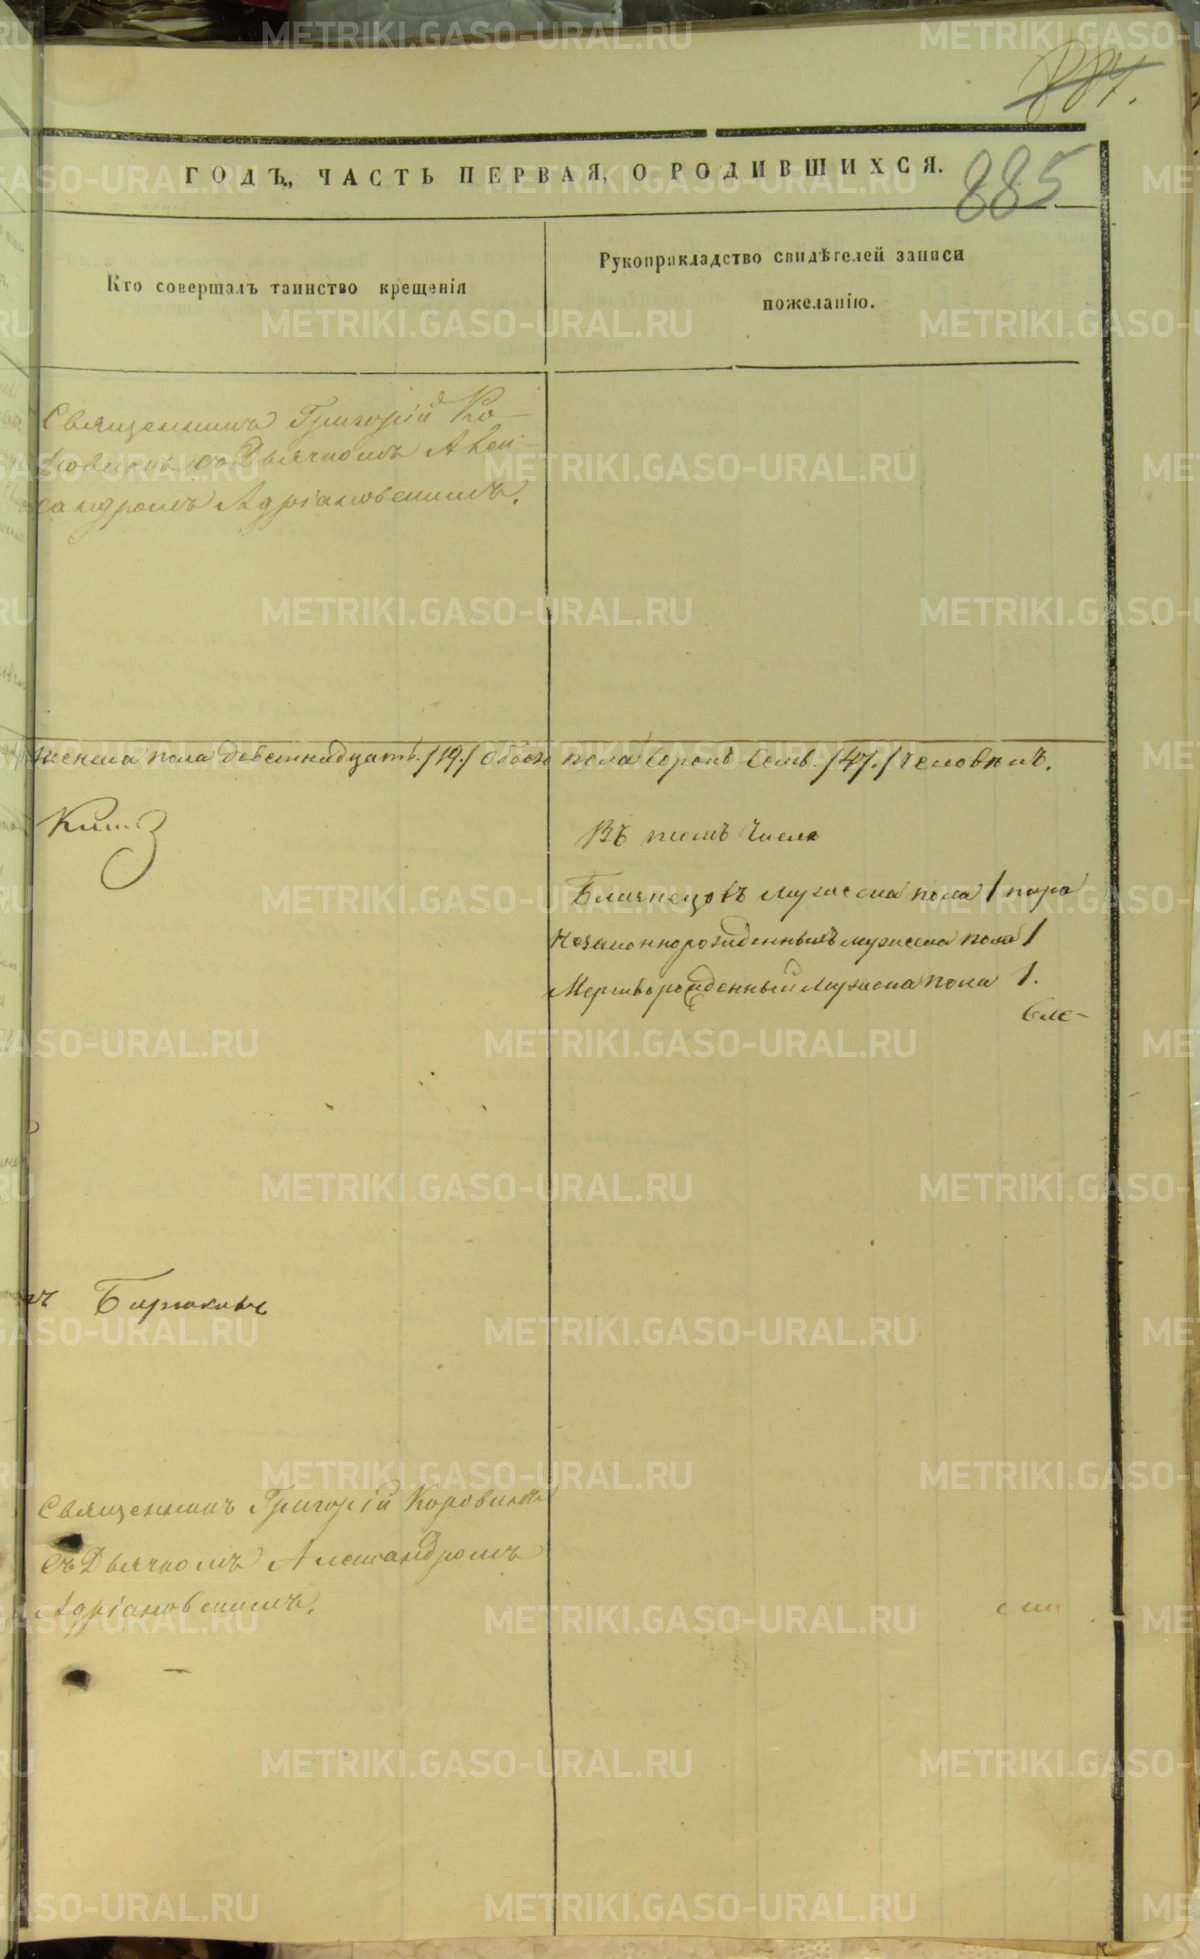 884.
885
ГОДЪ, ЧАСТЬ ПЕРВАЯ, О РОДИВШИХСЯ.
Кто совершалъ таинство крещенія
Рукоприкладство свидѣтелей записи
пожеланію.
Священникъ Григорій Ко-
ровинъ съ Дьячкомъ Алек-
сандромъ Адріановскимъ.
женска пола девятнадцать /19/ обоего пола сорокъ семь /47./ человѣкъ.
Въ томъ числѣ
Близнецовъ мужеска пола 1 пара
Незаконнорожденныхъ мужеска пола 1
Мертворожденный мужеска пола 1.
Свя-
Бирюковъ
Священникъ Григорій Коровинъ
съ Дьячкомъ Александромъ
Адріановскимъ.
METRIKI.GASO-URAL.RU